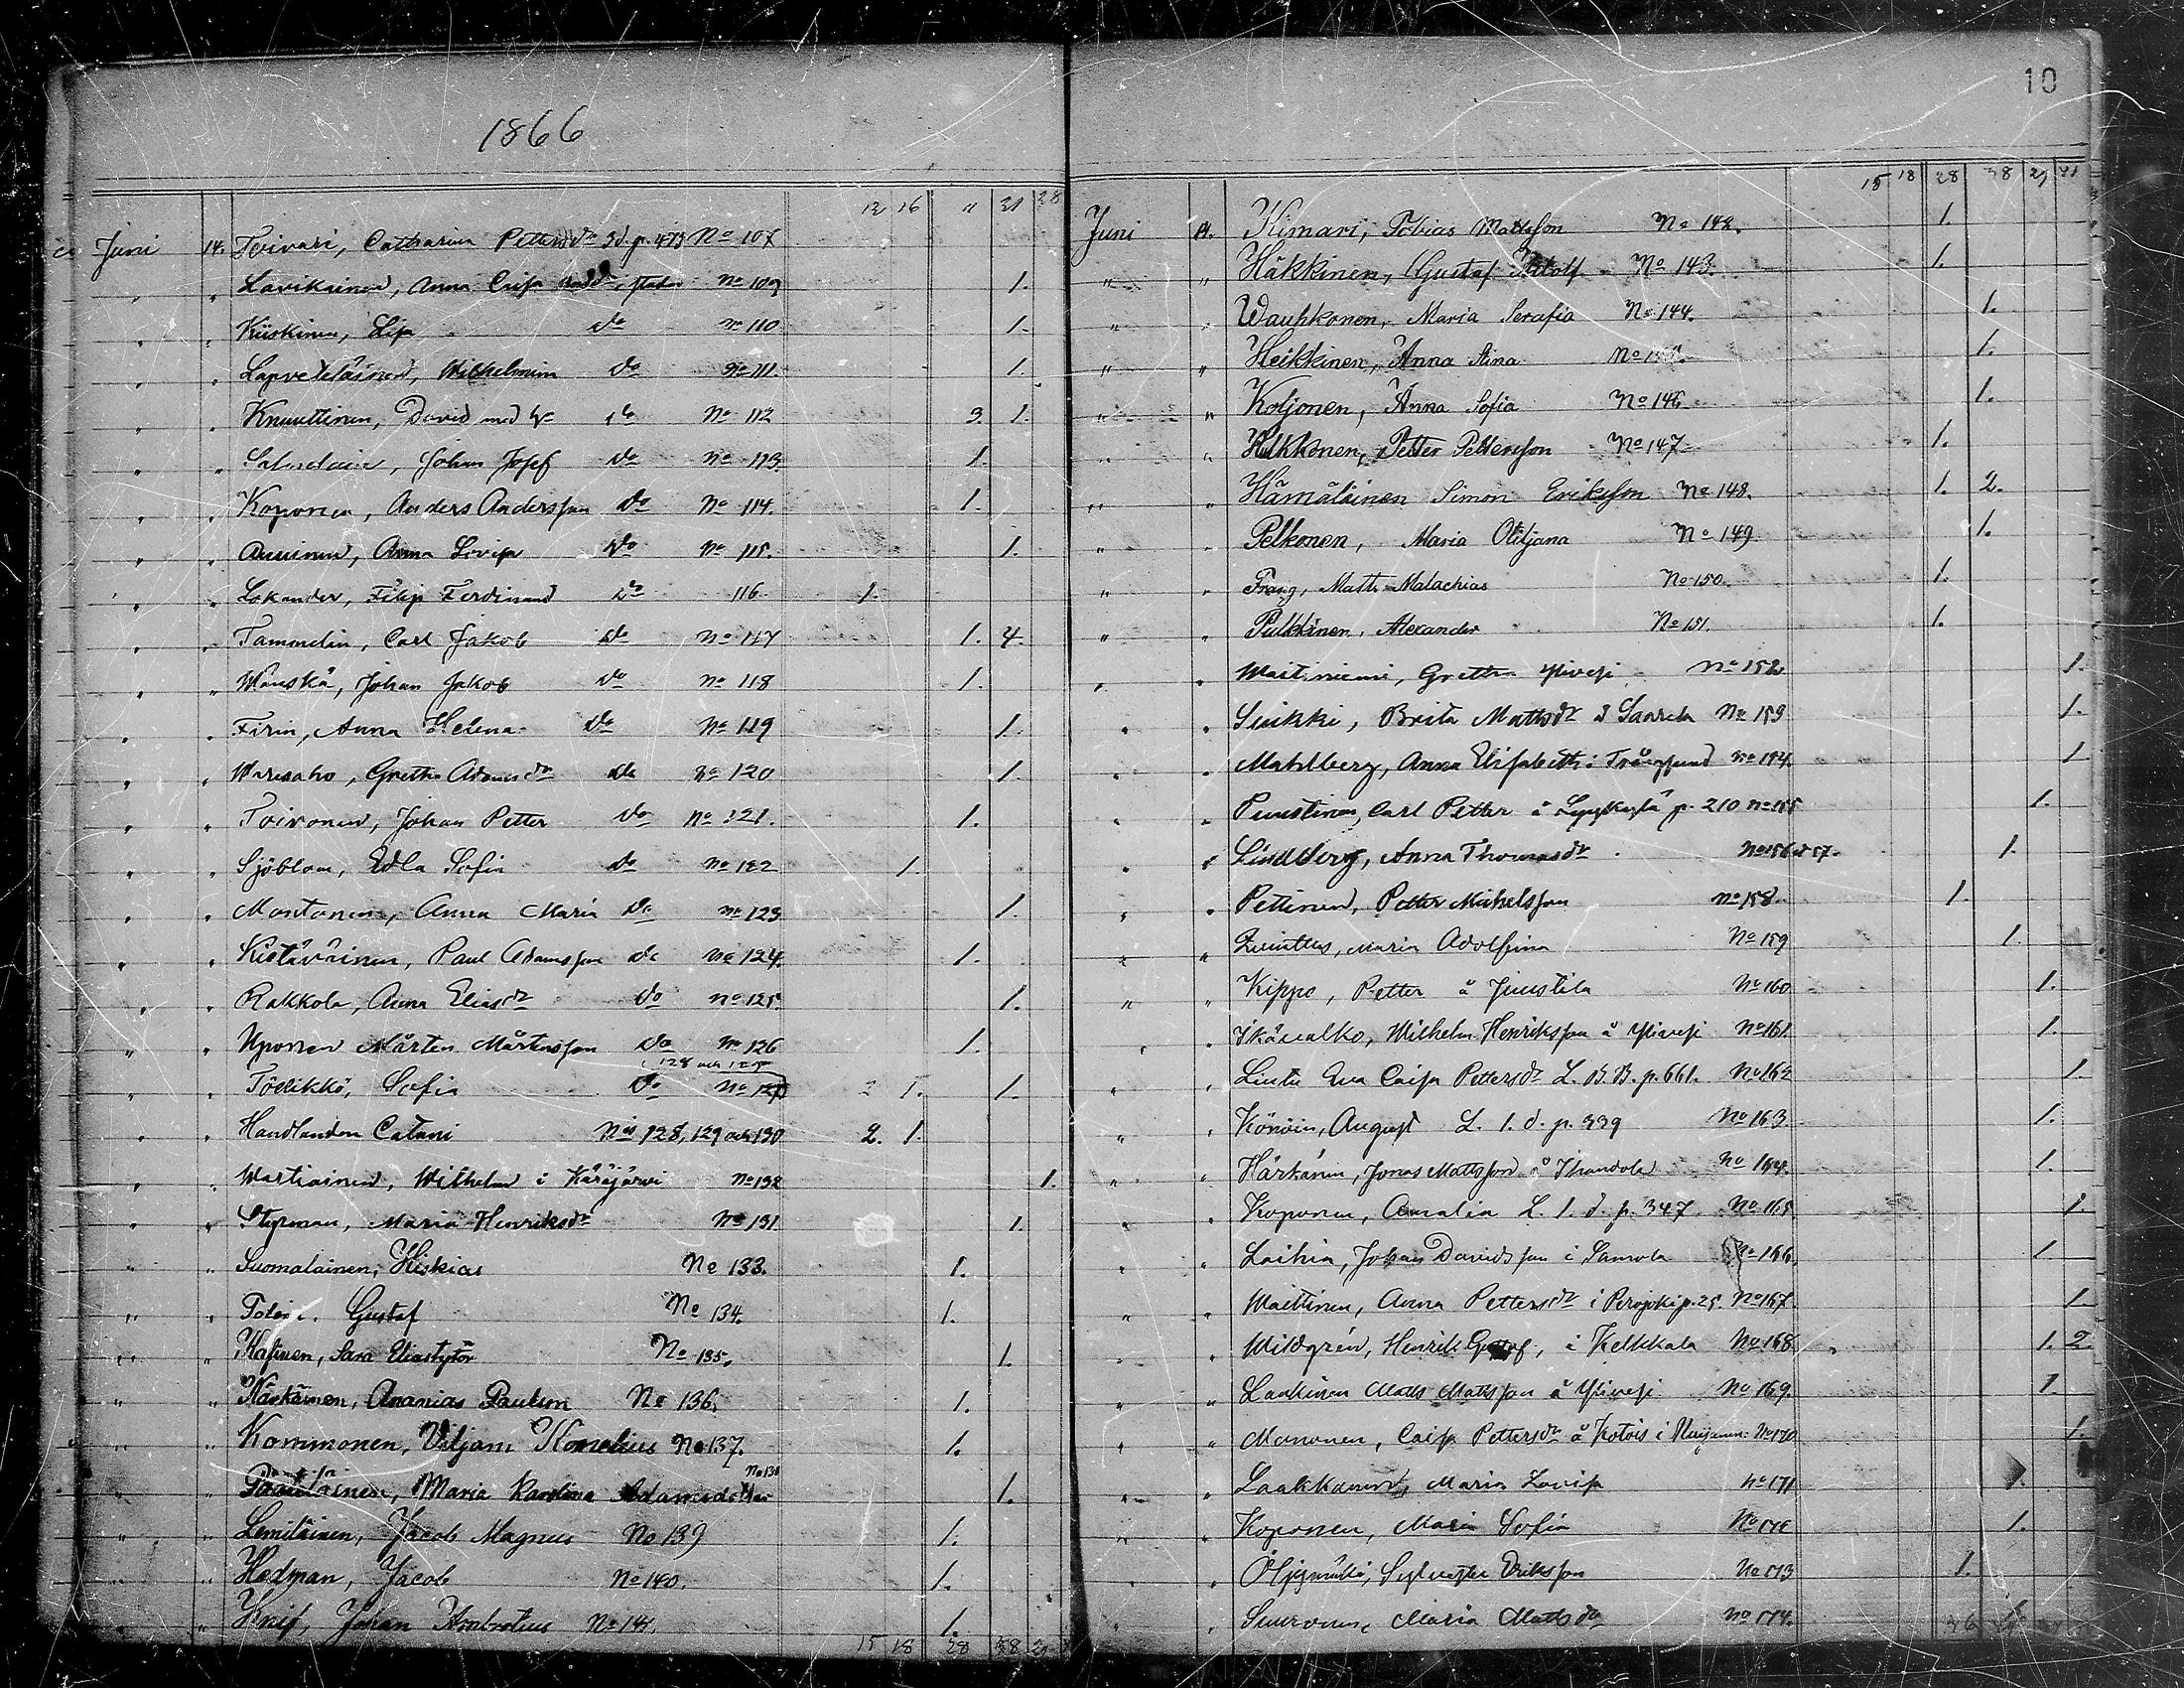 10
1866
12 16 " 31 28
Juni 14. Toivari, Catharina Pettersdr 3d. p. 473 No 107
" " Lavikainen, Anna Caisa i staden No 109 1.
" " Kiiskinen, Lisa do No 110 1.
" " Lapveteläinen, Wilhelmina do No 111. 1.
" " Knuuttinen, David med h. do No 112 3. 1.
" " Johan Josef do No 113. 1.
" " Koponen, Anders Andersson do No 114. 1.
" " Anna Lovisa do No 115. 1.
" " Lokander, Filip Ferdinand do 116. 1.
" " Tamondin, Carl Jakob do No 117 1. 4.
" " Wänskä, Johan Jakob do No 118 1.
" " Firin, Anna Helena do No 119 1.
" " Waresaho, Gretha Adamsdr do No 120 1.
" " Toivonen, Johan Petter do No 121. 1.
" " Sjöblom, Edla Sofia do No 122 1.
" " Montonen, Anna Maria do No 123 1.
" " Kietäväinen, Paul Adamsson do No 124. 1.
" " Rakkola, Anna Eliasdr do No 125. 1.
" " Uponen Mårten Mårtensson do No 126 1.
" " Sofia do No 127 1. 1.
" " Handlanden Catani Nis 128, 129 och 130 2. 1.
" " Wartiainen, Wilhelm i Käräjärvi No 132 1.
" " Styrman, Maria Henriksdr No 131 1.
" " Suomalainen, Hiskias No 133. 1.
" " Gustaf No 134. 1.
" " Sara Eliastytör No 135. 1.
" " Ananias Paulson No 136. 1.
" " Kommonen, Viljam Kornelius No 137. 1.
" " Maria Karolina Adamsdotter No 138 1.
" " Lemiläinen, Jacob Magnus No 139 1.
" " Hedman, Jacob No 140. 1.
" " Knif, Johan Ambrotius No 141. 1.
15 18 28 38 29
15 18 28 38 29 31
Juni 14. Kimari, Tobias Mattsson No 142. 1.
" " Häkkinen, Gustaf Adolf No 143. 1.
" " Wauhkonen, Maria Serafia No 144. 1.
" " Heikkinen, Anna Stina No 145. 1.
" " Koljonen, Anna Sofia No 146 1.
" " Petter Pettersson No 147 1.
" " Hämäläinen Simon Eriksson No 148. 1. 2.
" " Pelkonen, Maria Otiljana No 149 1.
" " Frang, Matts Malachias No 150. 1.
" " Pulkkinen, Alexander No 151. 1.
" " Waitiniemi, Gretha Ylivesi No 152 1.
" " Siikki, Brita Mattsdr No 153 1.
" " Mahlberg, Anna Elisabeth i Trångsund No 154. 1
" " Puustinen, Carl Petter å p. 210 No 155 1.
" " Lindberg, Anna Thomasdr No 156. 57. 1.
" " Pettinen, Petter Michelsson No 158. 1.
" " Maria Adolfina No 159 1.
" " Kippo, Petter å Juustila No 160 1.
" " Ikävalko, Wilhelm Henriksson å Ylivesi No 161. 1.
" " Lintu Eva Caisa Pettersdr L. B. B. p. 661. No 162 1.
" " Könöin, August L. 1. d. p. 339 No 163 1.
" " Härkänen, Jonas Mattsson å Ihandola No 164. 1.
" " Koponen, Amalia L. 1. d. p. 347 No 165 1.
" " Laihia, Johan Davidsson i Samola No 166. 1
" " Waittinen, Anna Pettersdr i Perojoki p. 25. No 167. 1.
" " Wildgrén, Henrik Gustaf, i Kelkkala No 168 1. 2.
" " Laakinen Matts Mattsson å Ylivesi No 169. 1.
" " Manonen, Caisa Pettersdr å Kotois i No 170 1.
" " Laakkonen, Maria Lovisa No 171 1.
" " Koponen, Maria Sofia No 172 1.
" " Öljymäki, Sylvester Eriksson No 173 1.
" " Maria Mattsdr No 174. 1.